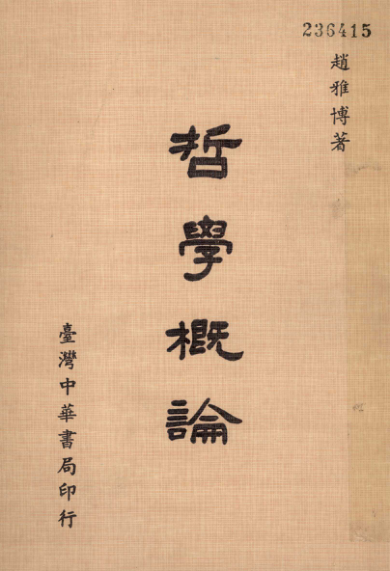 236415
趙雅博著
哲學概論
臺灣中華書局印行